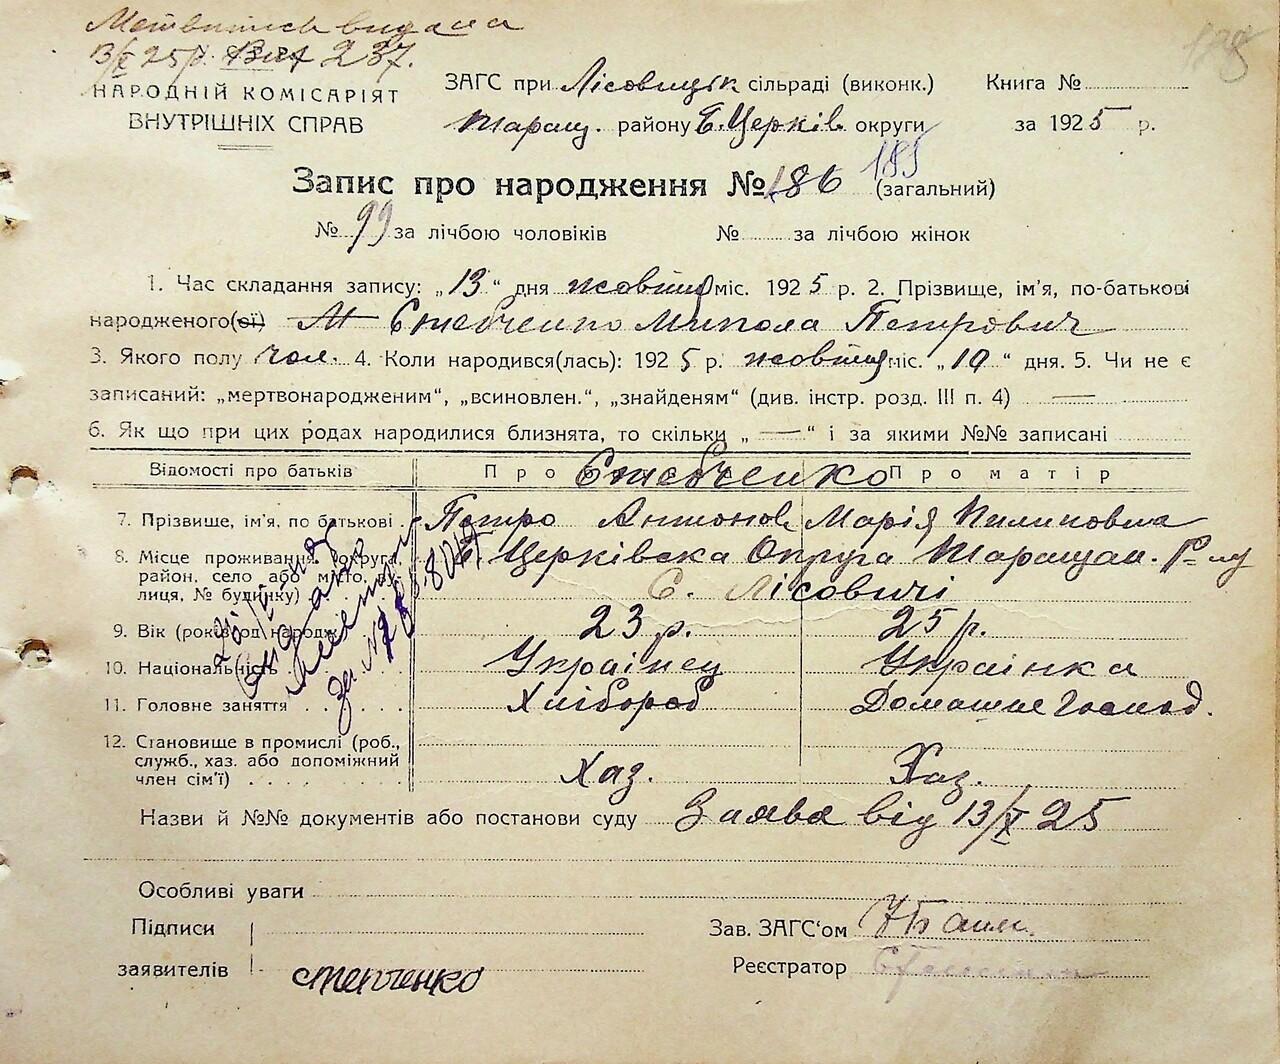 Метвитись видана
13/X 25р. 237.
188
НАРОДНІЙ КОМІСАРІЯТ
ВНУТРІШНІХ СПРАВ
ЗАГС при Лісовицьк сільраді (виконк.)
Таращ. району Б.Церків. округи
Книга №
за 1925 р.
Запис про народження № 186 185 (загальний)
№ 99 за лічбою чоловіків № за лічбою жінок
1. Час складання запису: „13“ дня жовтня міс. 1925 р. 2. Прізвище, ім'я, по-батькові
народженого(ої) М Стебченко Микола Петрович
3. Якого полу чол. 4. Коли народився(лась): 1925 р. жовтня міс. „10“ дня. 5. Чи не є
записаний: „мертвонародженим“, „всиновлен.“, „знайденям“ (див. інстр. розд. III п. 4) —
6. Як що при цих родах народилися близнята, то скільки „—“ і за якими №№ записані
Відомості про батьків Про Стебченко Про матір
7. Прізвище, ім'я, по батькові Петро Антонов Марія Пилиповна
8. Місце проживання (округа, район, село або місто, вулиця, № будинку) Б Церківска Округа Таращан. Р-ну
С. Лісовичі
9. Вік (років од народж 23 р. 25 р.
10. Національність Українец Українка
11. Головне заняття Хлібороб Домашнє Господ.
12. Становище в промислі (роб.,
служб., хаз. або допоміжний
член сім'ї) Хаз. Хаз.
Назви й №№ документів або постанови суду Заява від 13/X 25
Особливі уваги
Підписи
заявителів степченко
Зав. ЗАГС'ом
Реєстратор